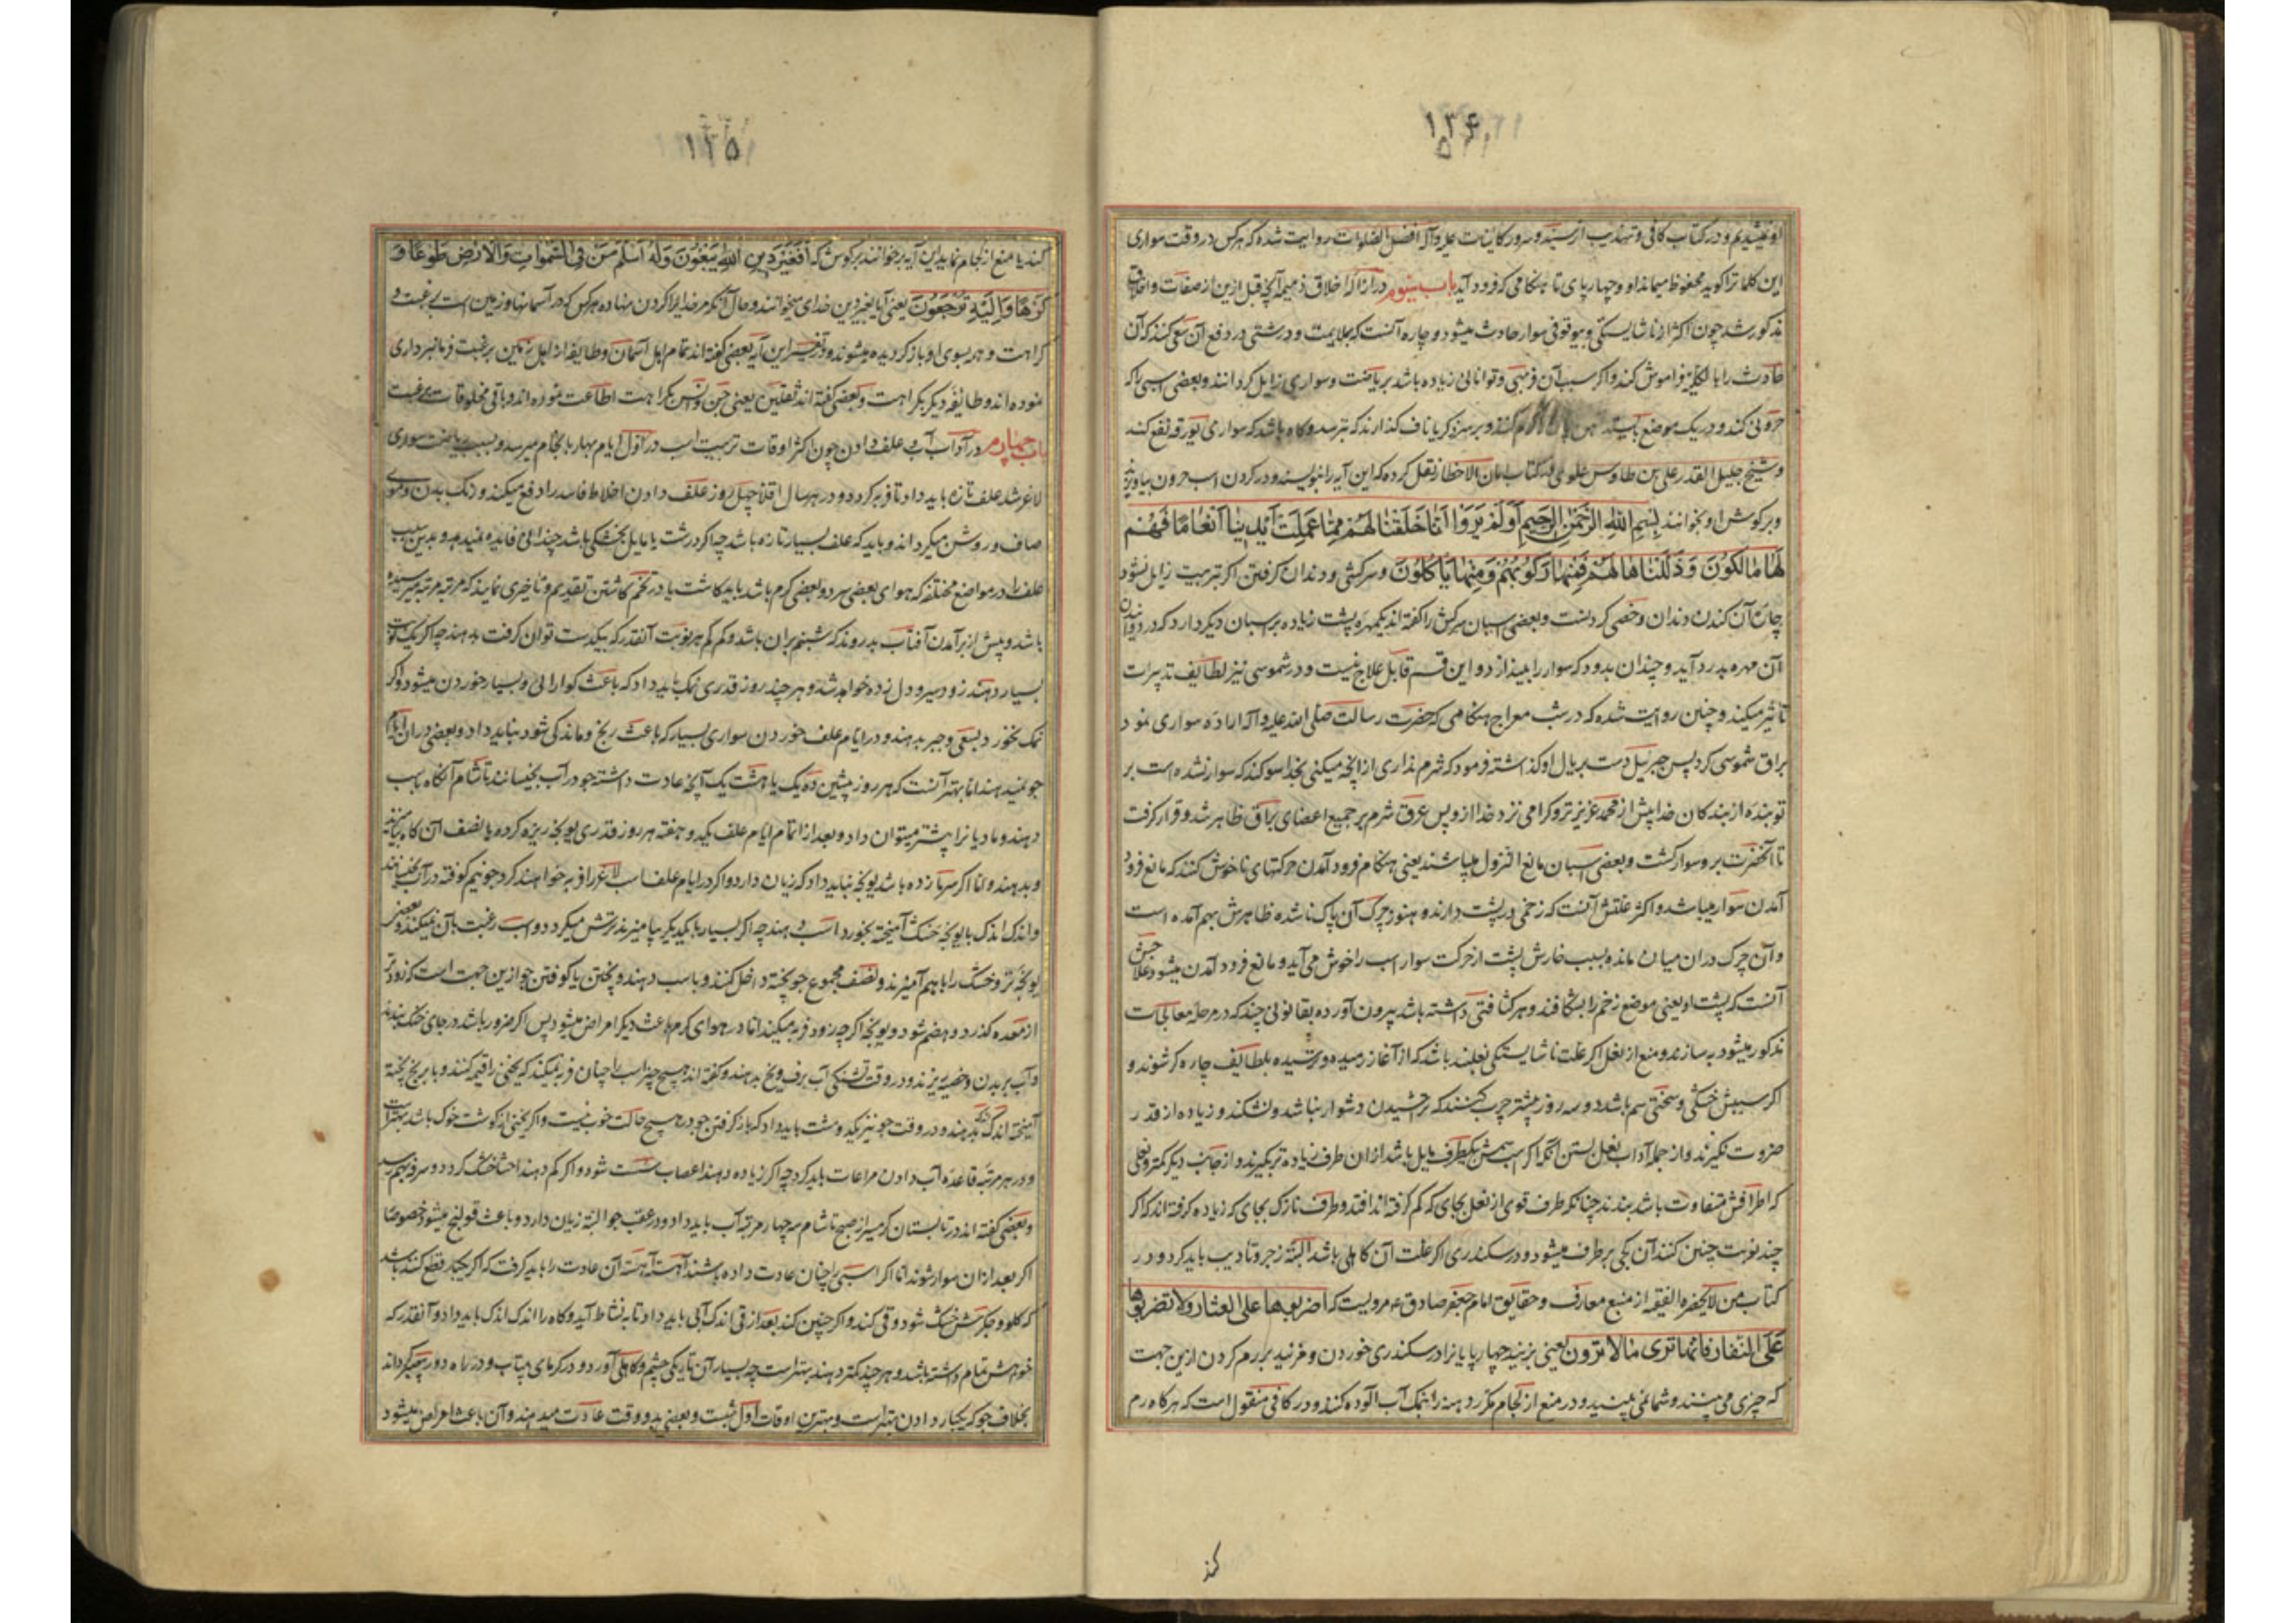 ۱۳۴
او نشیدیم و در کتاب کافی و تهذیب از سید و سرور کاینات علیه و آله افضل الصلوات روایت شده که هر کس در وقت سواری
این کلمات را کوید محفوظ میماند او و چهارپای تا هنکامی که فرود آید باب سیوم در ازاله اخلاق ذمیمه آنچه قبل ازین از صفات و اخلاق
مذکور شد چون اکثر از ناشایستکی و بیوقوفی سوار حادث میشود و چاره آنست که بملایمت و درشتی در دفع آن سعی کنند که آن
حادث را بالکلیه فراموش کند و اکر سبب آن فربهی و توانائی زیاده باشد بریاضت و سواری زایل کردانند و بعضی اسبی را که
حرونی کند و در یک موضع بایستد کرم کنند و بر سرین کره یا ناف کذارند که بترسد و کاه باشد که سواری یورقه نفع کند
و شیخ جلیل القدر علی بن طاوس علوی در کتاب امان الاخطار نقل کرده که این آیه را بنویسند و در کردن اسب حرون بیاویزند
و بر کوش او بخوانند بسم الله الرحمن الرحیم أَوَلَمْ يَرَوْا أَنَّا خَلَقْنَا لَهُمْ مِمَّا عَمِلَتْ أَيْدِينَا أَنْعَامًا فَهُمْ
لَهَا مَالِكُونَ وَذَلَّلْنَاهَا لَهُمْ فَمِنْهَا رَكُوبُهُمْ وَمِنْهَا يَأْكُلُونَ و سرکشی و دندان کرفتن اکر بتربیت زایل نشود
چاره آن کندن دندان و خصی کردنست و بعضی اسبان سرکش را کفته اند یکمهره پشت زیاده بر اسبان دیکر دارد که در دویدن
آن مهره بدرد آید و چندان بدود که سوار را بیندازد و این قسم قابل علاج نیست و در شموسی نیز لطایف تدبیرات
تاثیر میکند و چنین روایت شده که در شب معراج هنکامی که حضرت رسالت صلی الله علیه و آله اراده سواری نمود
براق شموسی کرد پس جبریل دست بر یال او کذاشته فرمود که شرم نداری از آنچه میکنی بخدا سوکند که سوار نشده است بر
تو بنده از بندکان خدا پیش از محمد عزیزتر و کرامی نزد خدا ازو پس عرق شرم بر جمیع اعضای براق ظاهر شد و قرار کرفت
تا آنحضرت برو سوار کشت و بعضی اسبان مانع النزول میباشند یعنی هنکام فرود آمدن حرکتهای ناخوش کنند که مانع فرود
آمدن سوار میباشد و اکثر علتش آنست که زخمی در پشت دارند و هنوز چرک آن پاک ناشده ظاهرش بهم آمده است
و آن چرک در ان میان مانده بسبب خارش پشت از حرکت سوار اسب را خوش می آید و مانع فرود آمدن میشود علاجش
آنست که پشت او یعنی موضع زخم را بشکافند و هر کثافتی داشته باشد بیرون آورده بقانونی چند که در مرحله معالجات
مذکور میشود به سازند و منع از نعل اکر علت ناشایستکی نعلبند باشد که از آغاز رمیده و ترسیده بلطایف چاره کر شوند و
اکر سببش خشکی و سختی سم باشد دو سه روز پیشتر چرب کنند که تراشیدن دشوار نباشد و نشکند و زیاده از قدر
ضرورت نکیرند و از جمله آداب نعل بستن آنکه اکر سمش بیکطرف مایل باشد از ان طرف زیاده تر بکیرند و از جانب دیکر کمتر و نعلی
که اطرافش متفاوت باشد ببندند چنانکه طرف قوی از نعل بجای که کم کرفته اند افتد و طرف نازک بجای که زیاده کرفته اند که اکر
چند نوبت چنین کنند آن کجی برطرف میشود و در سکندری اکر علت آن کاهلی باشد البته زجر و تادیب باید کرد و در
کتاب من لا یحضره الفقیه از منبع معارف و حقایق امام جعفر صادق ع مرویست که اضربوها علی العثار ولا تضربوها
علی النفار فانها تری مالا ترون یعنی بزنید چهارپایانرا در سکندری خوردن و مزنید بر رم کردن ازین جهت
که چیزی می بینند و شما نمی بینید و در منع از لجام مکرر دهنه را بنمک آب آلوده کنند و در کافی منقول است که هر کاه رم
کند
۱۳۵
کند یا منع از لجام نماید این آیه بر خوانند بر کوشش که أَفَغَيْرَ دِينِ اللَّهِ يَبْغُونَ وَلَهُ أَسْلَمَ مَنْ فِي السَّمَوَاتِ وَالْأَرْضِ طَوْعًا وَ
كَرْهًا وَإِلَيْهِ تُرْجَعُونَ یعنی آیا بغیر دین خدای میخوانند و حال آنکه مر خدایرا کردن نهاده هر کس که در آسمانها و زمین است برغبت و
کراهت و همه بسوی او باز کردیده میشوند و در تفسیر این آیه بعضی کفته اند تمام اهل آسمان و طایفه از اهل زمین برغبت فرمانبرداری
نموده اند و طایفه دیکر بکراهت و بعضی کفته اند ثقلین یعنی جن و انس بکراهت اطاعت نموده اند و باقی مخلوقات برغبت
باب چهارم در آداب آب و علف دادن چون اکثر اوقات تربیت اسب در اول ایام بهار بانجام میرسد و بسبب ریاضت سواری
لاغر شد علف تازه باید داد تا فربه کردد و در هر سال اقلا چهل روز علف دادن اخلاط فاسد را دفع میکند و رنک بدن و موی
صاف و روشن میکرداند و باید که علف بسیار تازه باشد چه اکر درشت یا مایل بخشکی باشد چندانی فایده نمیدهد و بدین سبب
علف را در مواضع مختلفه که هوای بعضی سرد و بعضی کرم باشد باید کاشت یا در تخم کاشتن تقدیم و تاخیری نمایند که مرتبه مرتبه میرسیده
باشد و پیش از برآمدن آفتاب بدروند که شبنم بران باشد و کم کم هر نوبت آنقدر که بیکدست توان کرفت بدهند چه اکر یک نوبت
بسیار دهند زود سیر و دل زده خواهد شد و هر چند روز قدری نمک باید داد که باعث کوارائی و بسیار خوردن میشود و اکر
نمک نخورد بسعی و جبر بدهند و در ایام علف خوردن سواری بسیار که باعث رنج و ماندکی شود نباید داد و بعضی در ان ایام
جو نمیدهند اما بهتر آنست که هر روز پیشین ده یک یا هشت یک آنچه عادت داشته جو در آب بخیسانند تا شام آنکاه باسب
دهند و مادیانرا بیشتر میتوان داد و بعد از اتمام ایام علف یکدو هفته هر روز قدری یونجه ریزه کرده با نصف آن کاه بیامیزند
و بدهند و اما اکر سرما زده باشد یونجه نباید داد که زیان دارد و اکر در ایام علف اسب لاغر را فربه خواهند کرد جو نیم کوفته در آب بخیسانند
و اندک اندک با یونجه خشک آمیخته بخورد اسب دهند چه اکر بسیار با یکدیکر بیامیزند ترش میکردد و اسب رغبت بآن نمیکند و بعضی
یونجه تر و خشک را باهم آمیزند و نصف مجموع جو پخته داخل کنند و باسب دهند و پختن یا کوفتن جو ازین جهت است که زودتر
از معده کذرد و هضم شود و یونجه اکر چه زود فربه میکند اما در هوای کرم باعث دیکر امراض میشود پس اکر ضرور باشد در جای خنک ببندند
و آب بر بدن و خصیه ریزند و در وقت تشنکی آب برف و یخ بدهند و کفته اند هیچ چیز اسب را چنان فربه نمیکند که یخنی را قیمه کنند و با برنج پخته
آمیخته اندک اندک بدهند و در وقت جو نیز یکدو مشت باید داد که باز کرفتن جو در هیچ حالت خوب نیست و اکر یخنی از کوشت خوک باشد بهتر است
و در هر مرتبه قاعده آب دادن مراعات باید کرد چه اکر زیاده دهند اعصاب سست شود و اکر کم دهند احشا خشک کردد و سرفه بهم رسد
و بعضی کفته اند در تابستان کرمسیر از صبح تا شام سه چهار مرتبه آب باید داد و در عقب جو البته زیان دارد و باعث قولنج میشود خصوصا
اکر بعد از ان سوار شوند اما اکر اسبی را چنان عادت داده باشند آهسته آهسته آن عادت را باید کرفت که اکر یکبار قطع کنند باشد
که کلو و جکرش خشک شود و قی کند و اکر چنین کند بعد از قی اندک آبی باید داد تا به نشاط آید و کاه را اندک اندک باید داد و آنقدر که
خواهش تمام داشته باشد و هر چند کمتر دهند بهتر است چه بسیار آن تاریکی چشم و کاهلی آورد و در کرمای بیتاب و در راه دور
بخلاف جو که یکبار دادن بهتر است و بهترین اوقات اول شبست و بعضی بدو وقت عادت میدهند و آن باعث امراض میشود